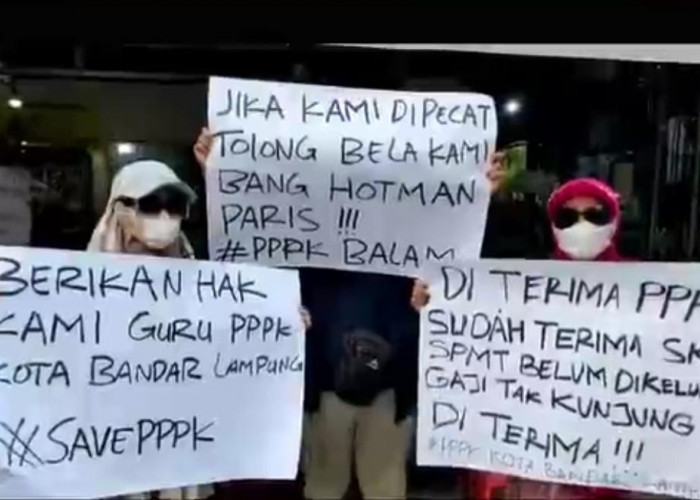 JIKA KAMI DIPECAT
TOLONG BELA KAMI
BANG HOTMAN
PARIS !!!
#PPPK BALAM
BERIKAN HAK
KAMI GURU PPPK
KOTA BANDAR LAMPUNG
#SAVEPPPK
DI TERIMA PPP
SUDAH TERIMA SK
SPMT BELUM DIKELU
GAJI TAK KUNJUNG
DI TERIMA !!!
#PPPK KOTA BANDAR